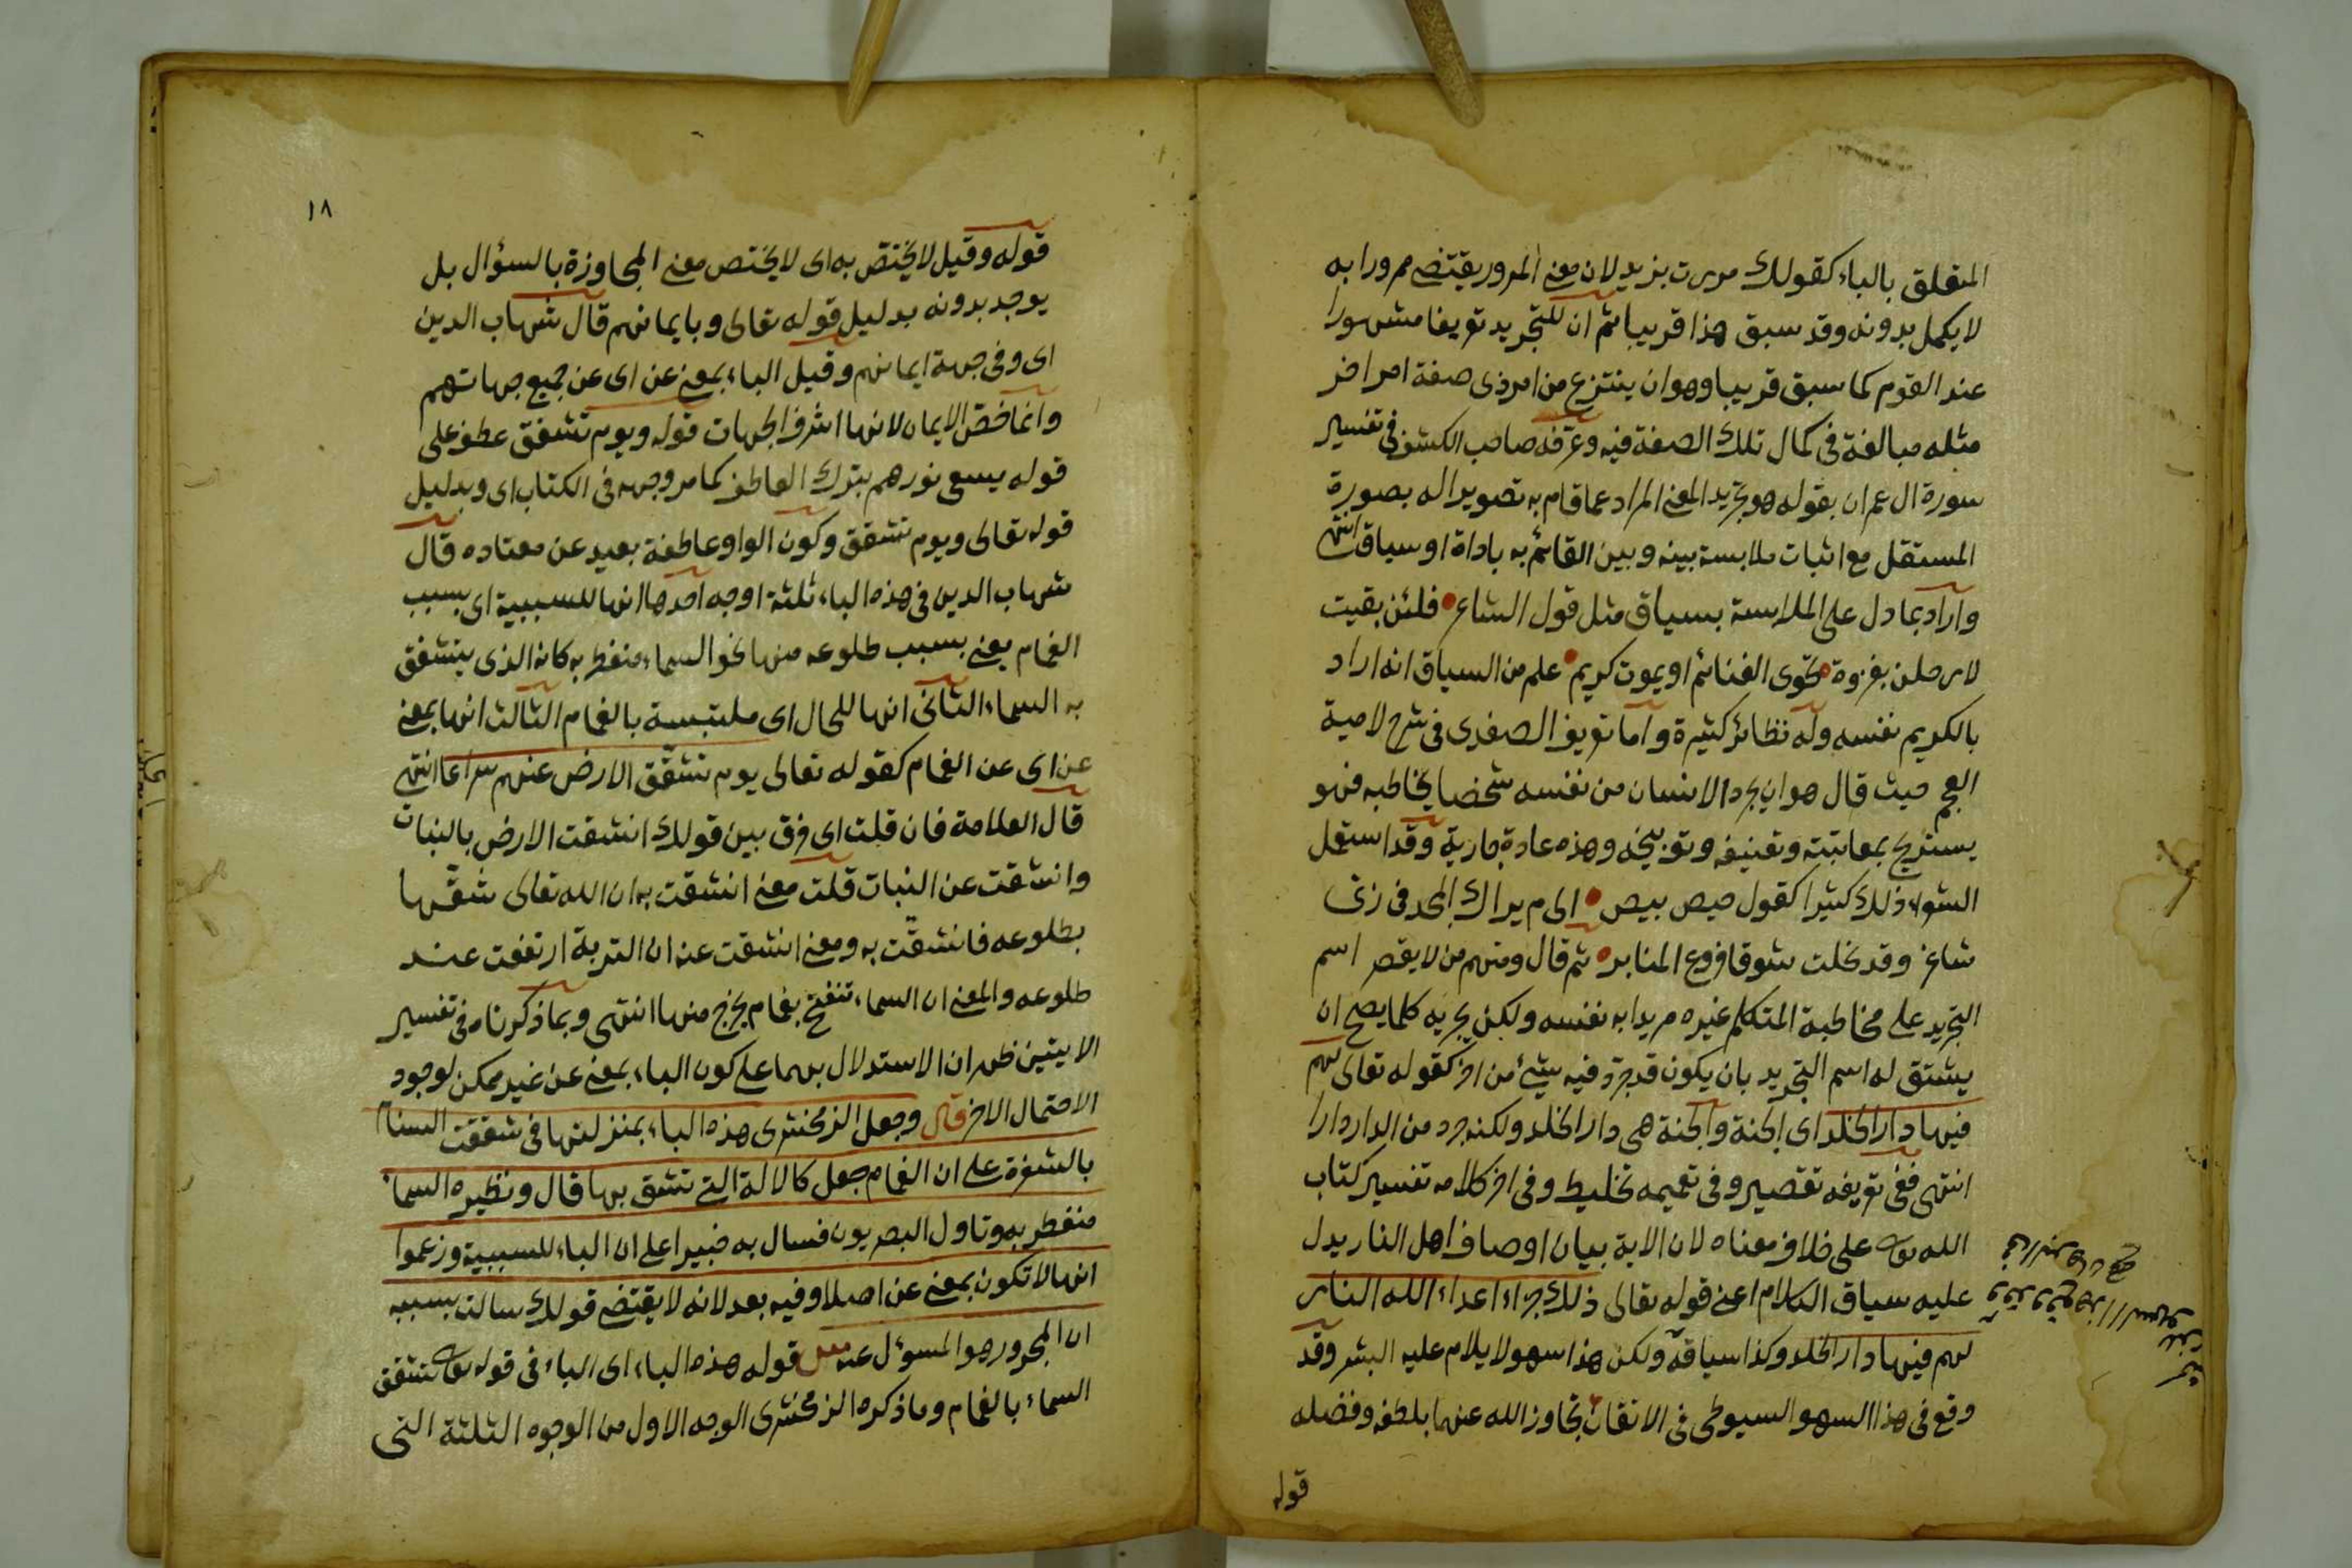 المتعلق بالباء كقولك مررت بزيد لان معنى المرور يقتضى ممرورا به
لا يكمل بدونه وقد سبق هذا قريبا ثم ان للتجريد تعريفا مشهورا
عند القوم كما سبق قريبا وهو ان ينتزع من امر ذى صفة امر اخر
مثله مبالغة فى كمال تلك الصفة فيه وعرّفه صاحب الكشف فى تفسير
سورة ال عمران بقوله هو تجريد المعنى المراد عما قام به تصويرا له بصورة
المستقل مع اثبات ملابسة بينه وبين القائم به باداة او سياق انتهى
واراد بما دل على الملابسة بسياق مثل قول الشاعر فلئن بقيت
لارحلن بغزوة تحوى الغنائم او يموت كريم علم من السياق انه اراد
بالكريم نفسه وله نظائر كثيرة واما تعريف الصفدى فى شرح لامية
العجم حيث قال هو ان يجرد الانسان من نفسه شخصا يخاطبه فهو
يستريح بمعاتبته وتعنيفه وتوبيخه وهذه عادة جارية وقد استعمل
الشعراء ذلك كثيرا كقول حيص بيص الى م يراك المجد فى زىّ
شاعر وقد نحلت شوقا فروع المنابر ثم قال ومنهم من لا يقصر اسم
التجريد على مخاطبة المتكلم غيره مريدا به نفسه ولكن يجريه كلما يصح ان
يشتق له اسم التجريد بان يكون قد جرّد فيه شئ من اخر كقوله تعالى لهم
فيها دار الخلد اى الجنة والجنة هى دار الخلد ولكنه جرد من الدار دارا
انتهى ففى تعريفه تقصير وفى تعميمه تخليط وفى اخر كلامه تفسير كتاب
الله تعالى على خلاف معناه لان الاية بيان اوصاف اهل النار يدل
عليه سياق الكلام اعنى قوله تعالى ذلك جزاء اعداء الله النار
لهم فيها دار الخلد وكذا سياقه ولكن هذا سهو لا يلام عليه البشر وقد
وقع فى هذا السهو السيوطى فى الاتقان تجاوز الله عنهما بلطفه وفضله
قوله
١٨
قوله وقيل لا يختصّ به اى لا يختص معنى المجاوزة بالسؤال بل
يوجد بدونه بدليل قوله تعالى وبايمانهم قال شهاب الدين
اى وفى جهة ايمانهم وقيل الباء بمعنى عن اى عن جميع جهاتهم
وانما خصّ الايمان لانها اشرف الجهات قوله ويوم تشقق عطف على
قوله يسعى نورهم بترك العاطف كما مر وجهه فى الكتاب اى وبدليل
قوله تعالى ويوم تشقق وكون الواو عاطفة بعيد عن معتاده قال
شهاب الدين فى هذه الباء ثلثة اوجه احدها انها للسببية اى بسبب
الغمام يعنى بسبب طلوعه منها نحو السماء منفطر به كانه الذى يتشقق
به السماء الثانى انها للحال اى ملتبسة بالغمام الثالث انها بمعنى
عن اى عن الغمام كقوله تعالى يوم تشقّق الارض عنهم سراعا انتهى
قال العلامة فان قلت اى فرق بين قولك انشقت الارض بالنبات
وانشقت عن النبات قلت معنى انشقت به ان الله تعالى شقّها
بطلوعه فانشقّت به ومعنى انشقت عنه ان التربة ارتفعت عند
طلوعه والمعنى ان السماء تنفتح بغمام يخرج منها انتهى وبما ذكرناه فى تفسير
الايتين ظهر ان الاستدلال بهما على كون الباء بمعنى عن غير ممكن لوجود
الاحتمال الاخر قال وجعل الزمخشرى هذه الباء بمنزلتها فى شققت السنام
بالشفرة على ان الغمام جعل كالالة التى تشق بها قال ونظيره السماء
منفطر به وتاول البصريون فسال به خبيرا على ان الباء للسببية وزعموا
انها لا تكون بمعنى عن اصلا وفيه بعد لانه لا يقتضى قولك سالت بسببه
ان المجرور هو المسؤل عنه قوله هذه الباء اى الباء فى قوله تعالى تشقق
السماء بالغمام وما ذكره الزمخشرى الوجه الاول من الوجوه الثلثة التى